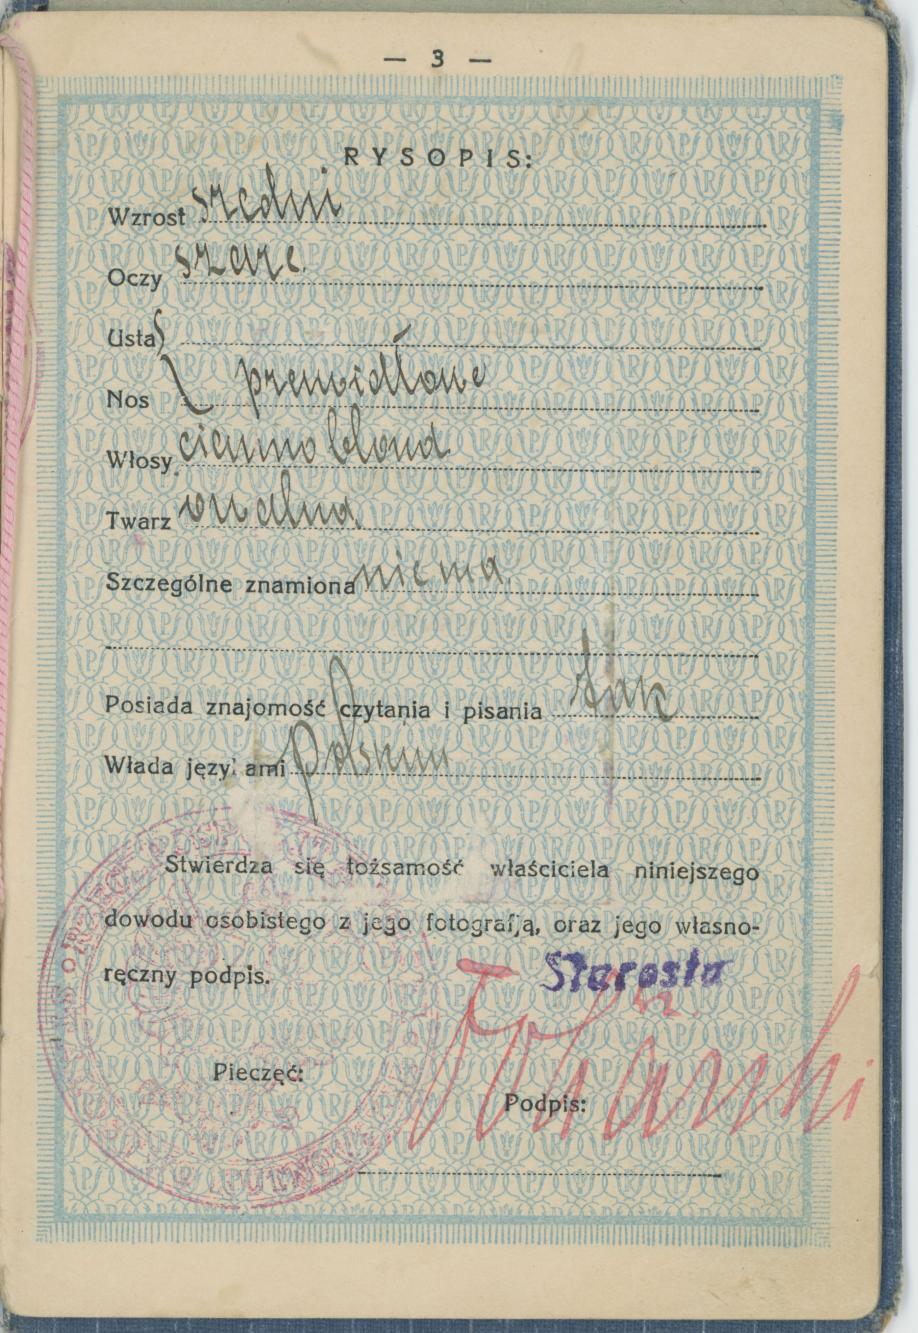 — 3 —
RYSOPIS:
Wzrost szedni
Oczy szare
Usta
Nos prawidłowe
Włosy ciemno blond
Twarz owalna
Szczególne znamiona niema
Posiada znajomość czytania i pisania tak
Włada języ ami polskim
Stwierdza się tożsamość właściciela niniejszego
dowodu osobistego z jego fotografją, oraz jego własno-
ręczny podpis.
Starosta
Pieczęć:
Podpis: